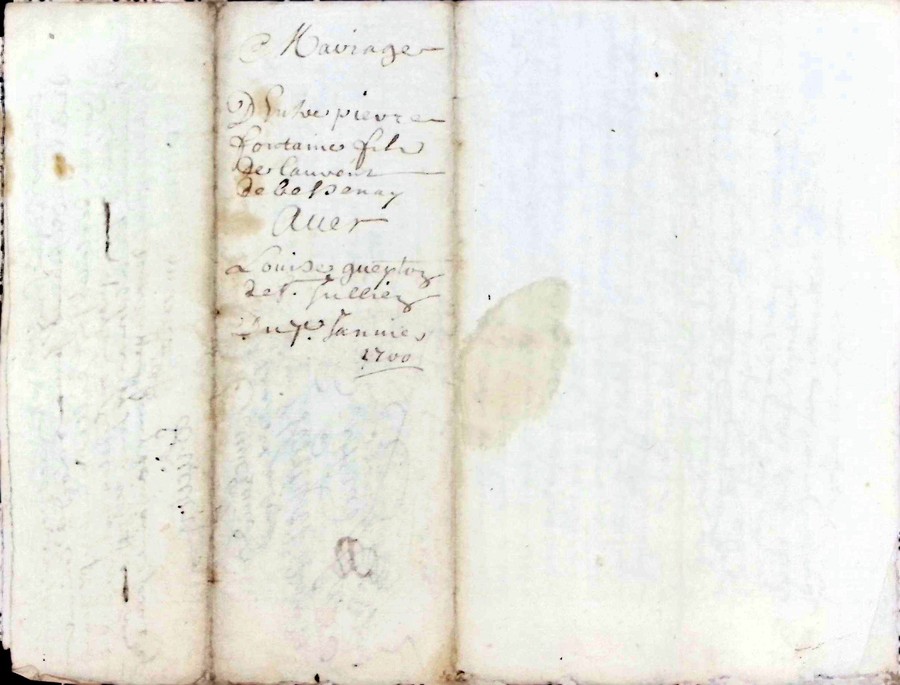 Mariage
D'Entre pierre
fontaine fils
De Laurent
de bessenay
Avec
Louise gueyton
de St. Jullien
Du 7e. Janvier
1700